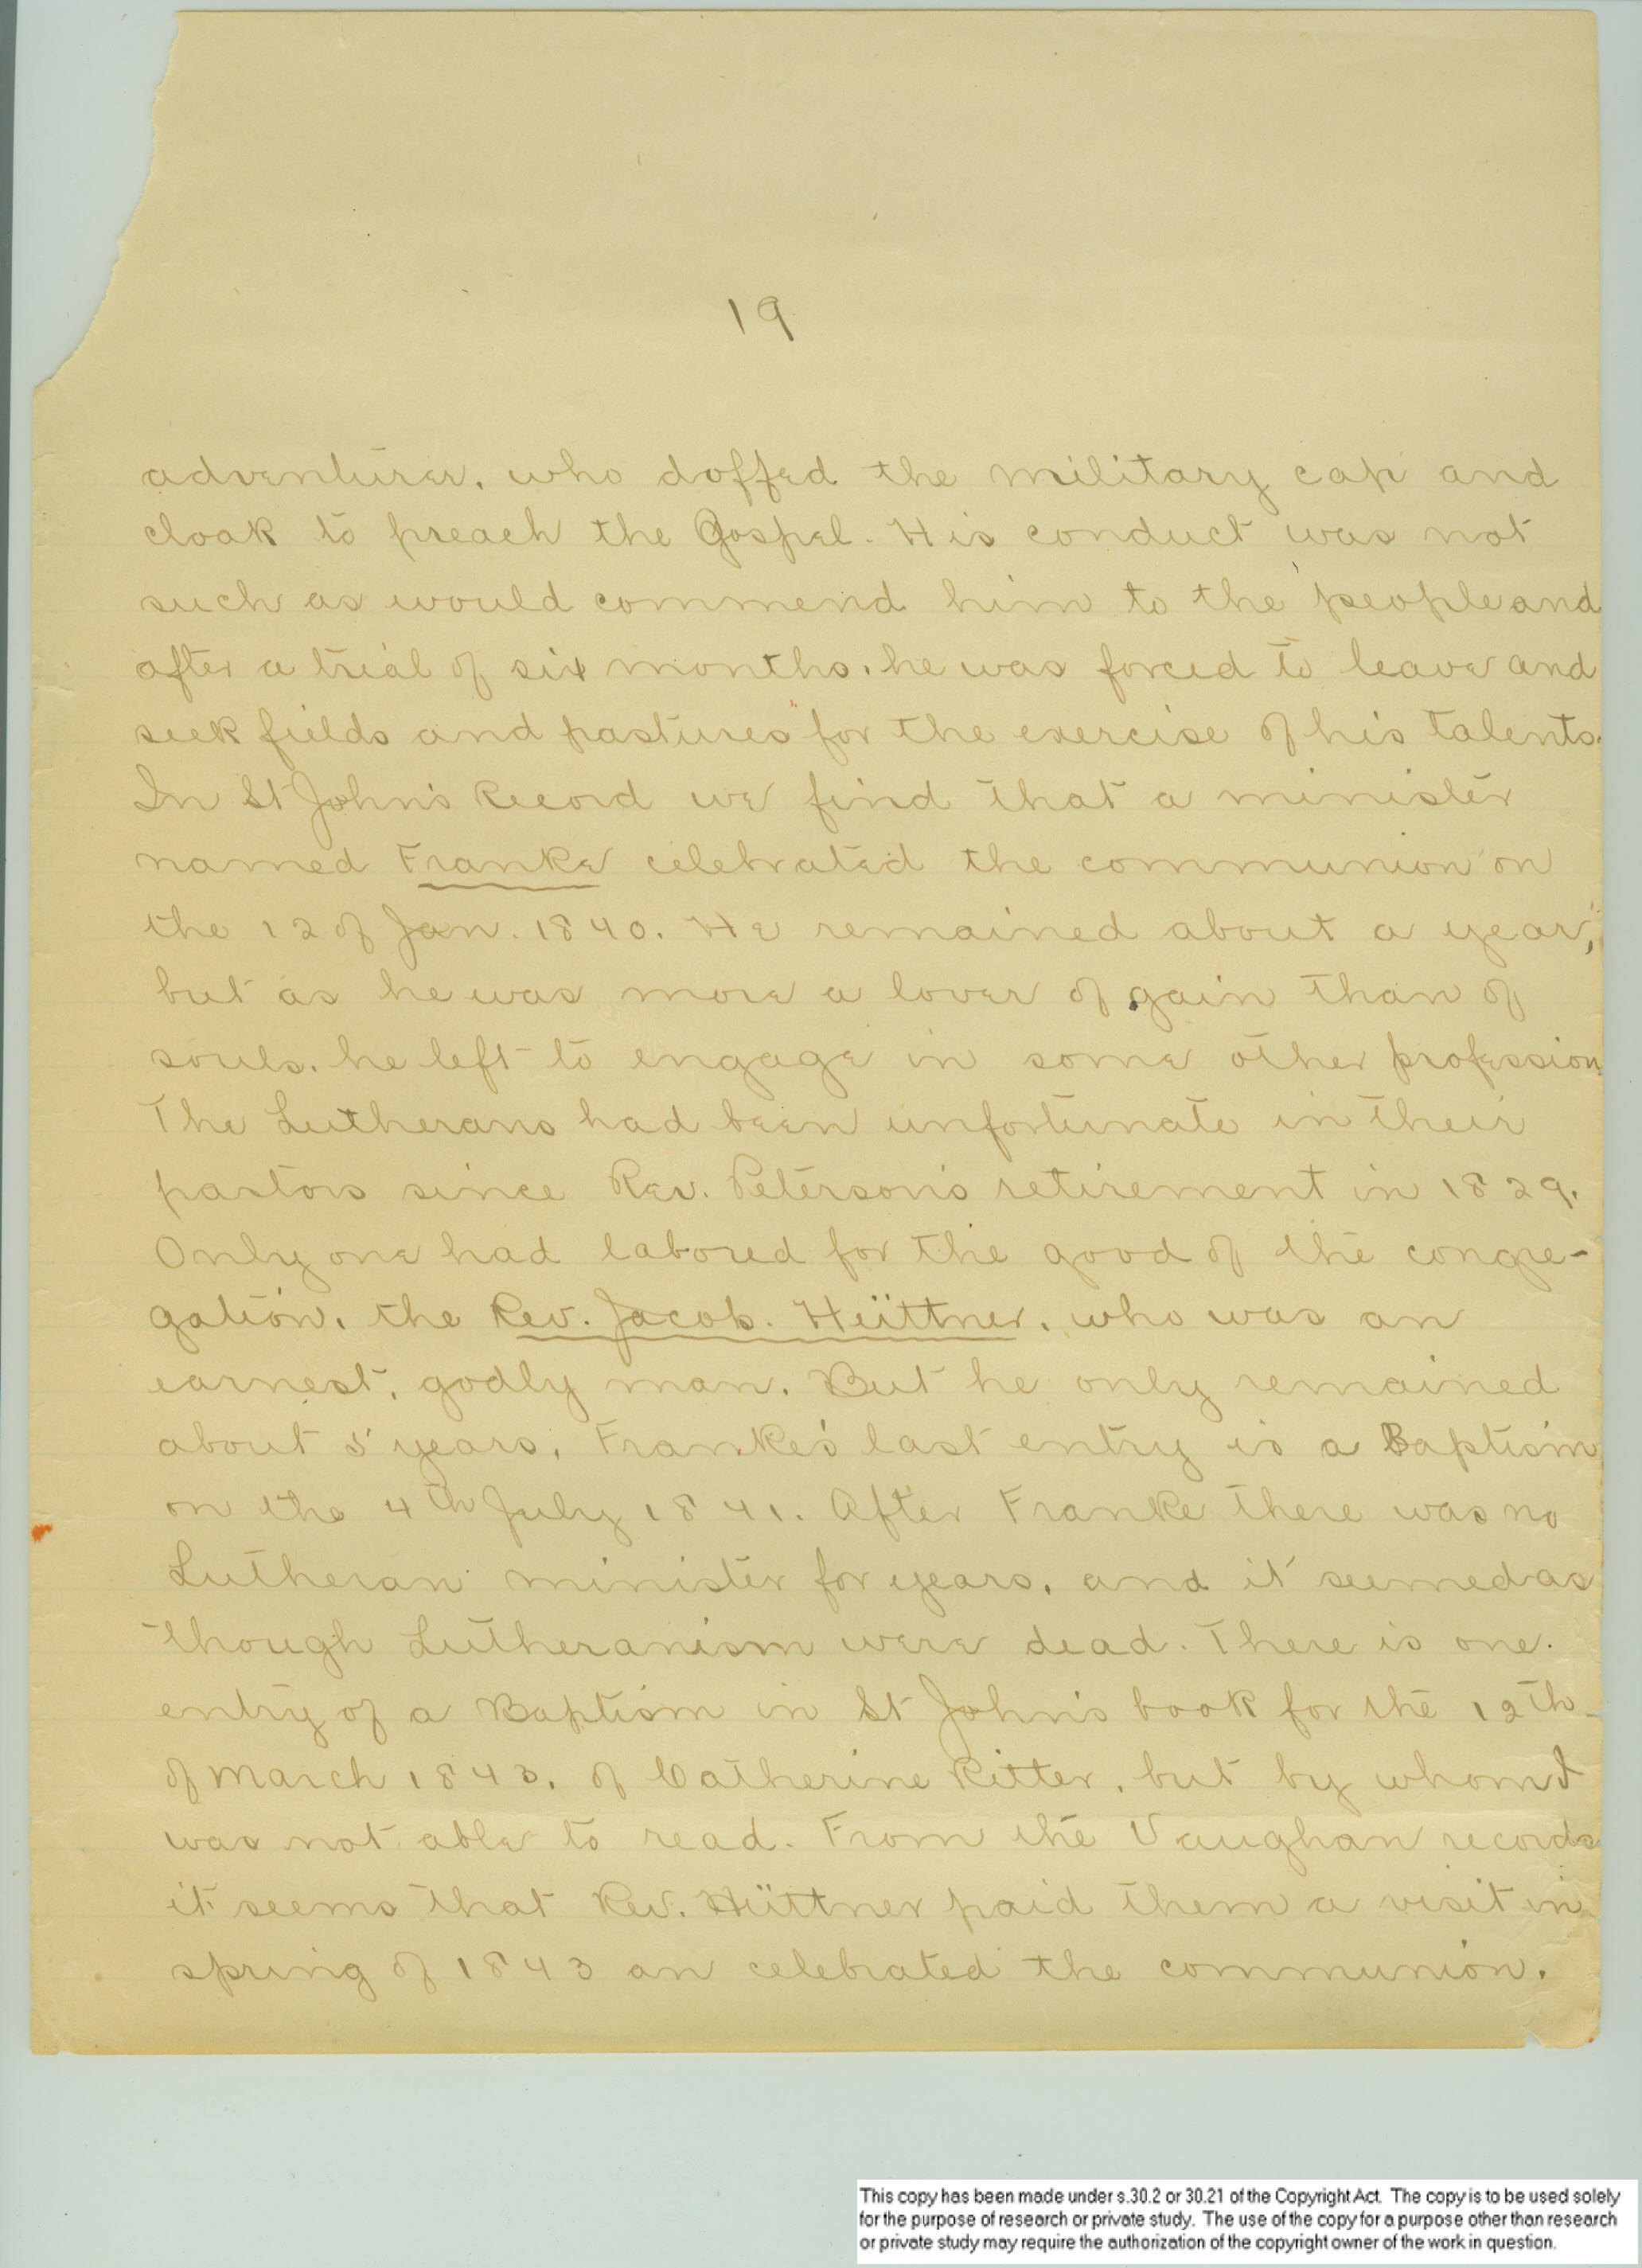 19
adventurer, who doffed the military cap and
cloak to preach the Gospel. His conduct was not
such as would commend him to the people and
after a trial of six months, he was forced to leave and
seek fields and pastures for the exercise of his talents.
In St John's Record we find that a minister
named Franke celebrated the communion on
the 12 of Jan. 1840. He remained about a year,
but as he was more a lover of gain than of
souls, he left to engage in some other profession.
The Lutherans had been unfortunate in their
pastors since Rev. Peterson's retirement in 1829.
Only one had labored for the good of the congre-
gation, the Rev. Jacob. Hüttner, who was an
earnest, godly man. But he only remained
about 5 years. Franke's last entry is a Baptism
on the 4th July 1841. After Franke there was no
Lutheran minister for years, and it seemed as
though Lutheranism were dead. There is one
entry of a Baptism in St John's book for the 12th
of March 1843, of Catherine Ritter, but by whom I
was not able to read. From the Vaughan records
it seems that Rev. Hüttner paid them a visit in
spring of 1843 an celebrated the communion.
This copy has been made under s.30.2 or 30.21 of the Copyright Act. The copy is to be used solely
for the purpose of research or private study. The use of the copy for a purpose other than research
or private study may require the authorization of the copyright owner of the work in question.